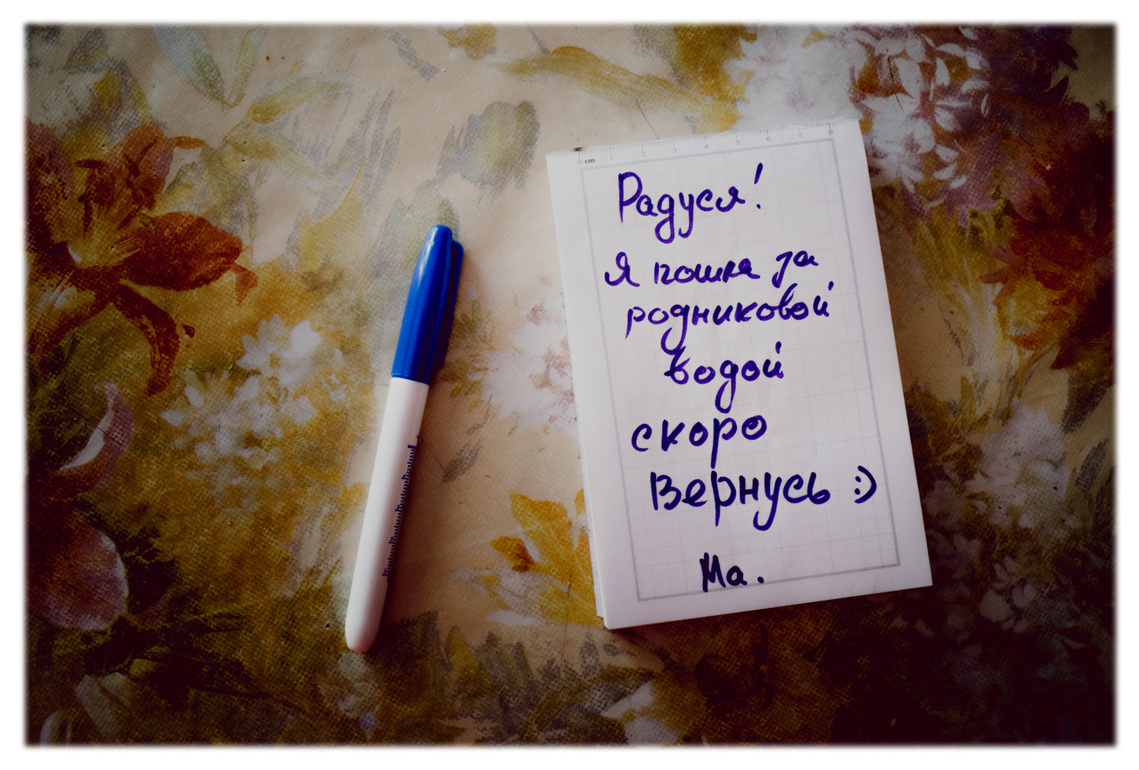 cm 1 2 3 4 5 6 7 8
Радуся!
Я пошла за
родниковой
водой
скоро
вернусь :)
Ма.